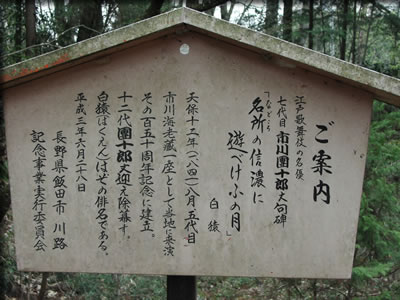 ご案内
江戸歌舞伎の名優
七代目市川團十郎大句碑
「名所の信濃に
などころ
遊べけふの月」
白猿
天保十二年(一八四一)八月五代目
市川海老蔵一座として当地に来演
その百五十周年記念に建立。
十二代團十郎丈迎え除幕す。
白猿(はくえん)はその俳名である。
平成三年六月二十八日
長野県飯田市川路
記念事業実行委員会